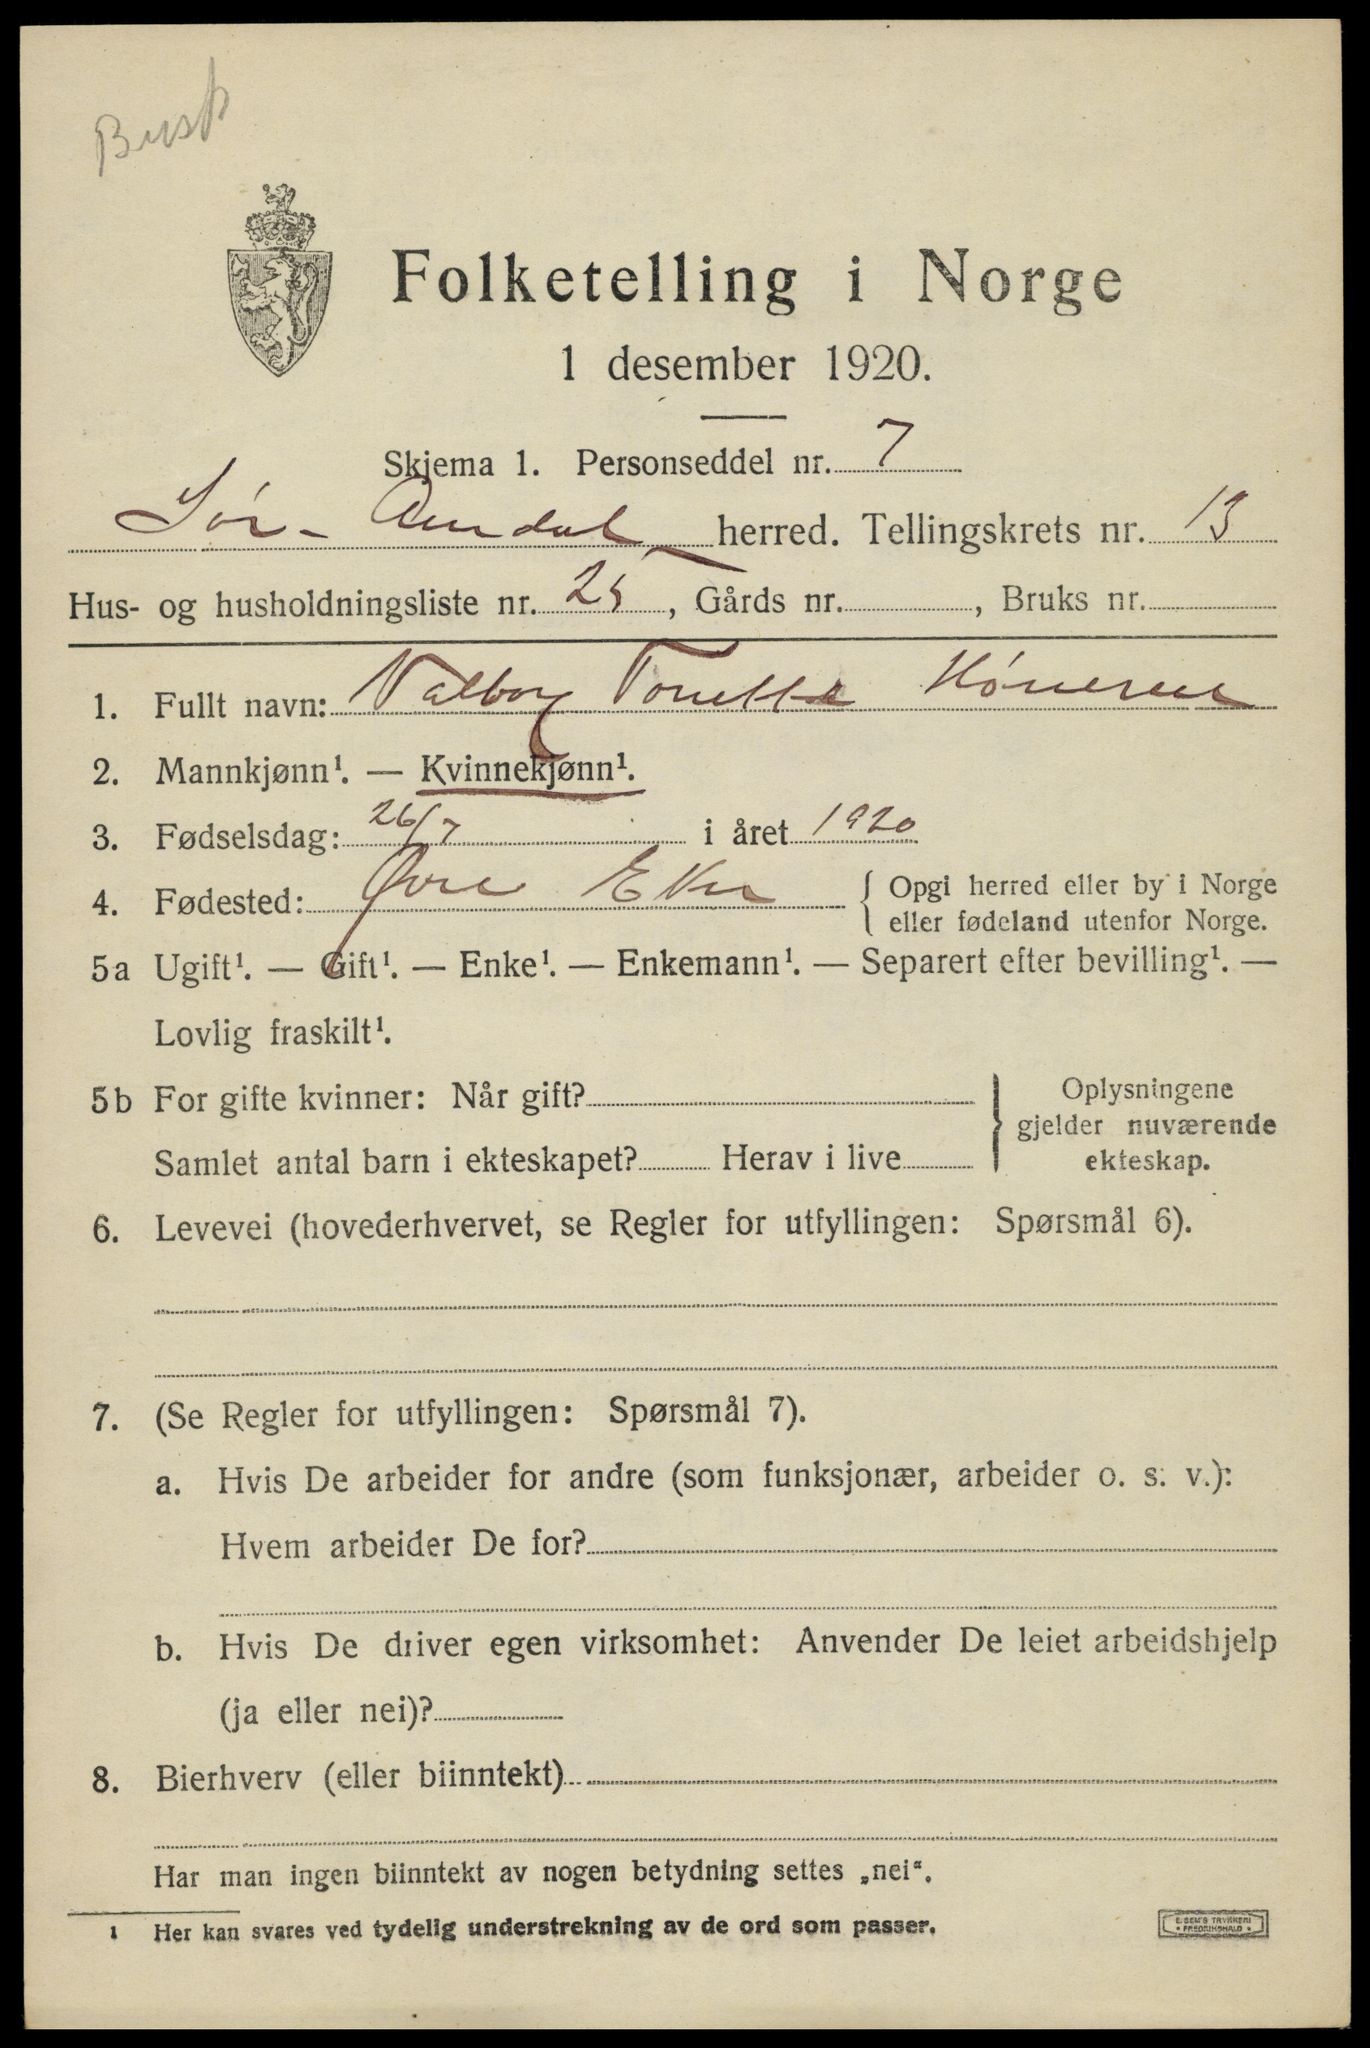 Busk
Folketelling i Norge
1 desember 1920.
Skjema 1. Personseddel nr. 7
Sør-Aurdal herred. Tellingskrets nr. 13
Hus- og husholdningsliste nr. 25, Gårds nr. , Bruks nr.
1. Fullt navn: Valborg Tonette
2. Mannkjønn¹. — Kvinnekjønn¹.
3. Fødselsdag: 26/7 i året 1920
4. Fødested: Øvre Eker { Opgi herred eller by i Norge
eller fødeland utenfor Norge.
5a Ugift¹. — Gift¹. — Enke¹. — Enkemann¹. — Separert efter bevilling¹. —
Lovlig fraskilt¹.
5b For gifte kvinner: Når gift? } Oplysningene
gjelder nuværende
Samlet antal barn i ekteskapet? Herav i live
ekteskap.
6. Levevei (hovederhvervet, se Regler for utfyllingen: Spørsmål 6).
7. (Se Regler for utfyllingen: Spørsmål 7).
a. Hvis De arbeider for andre (som funksjonær, arbeider o. s. v.):
Hvem arbeider De for?
b. Hvis De driver egen virksomhet: Anvender De leiet arbeidshjelp
(ja eller nei)?
8. Bierhverv (eller biinntekt)
Har man ingen biinntekt av nogen betydning settes „nei“.
1 Her kan svares ved tydelig understrekning av de ord som passer.
E. SEM'S TRYKKERI
• FREDRIKSHALD •